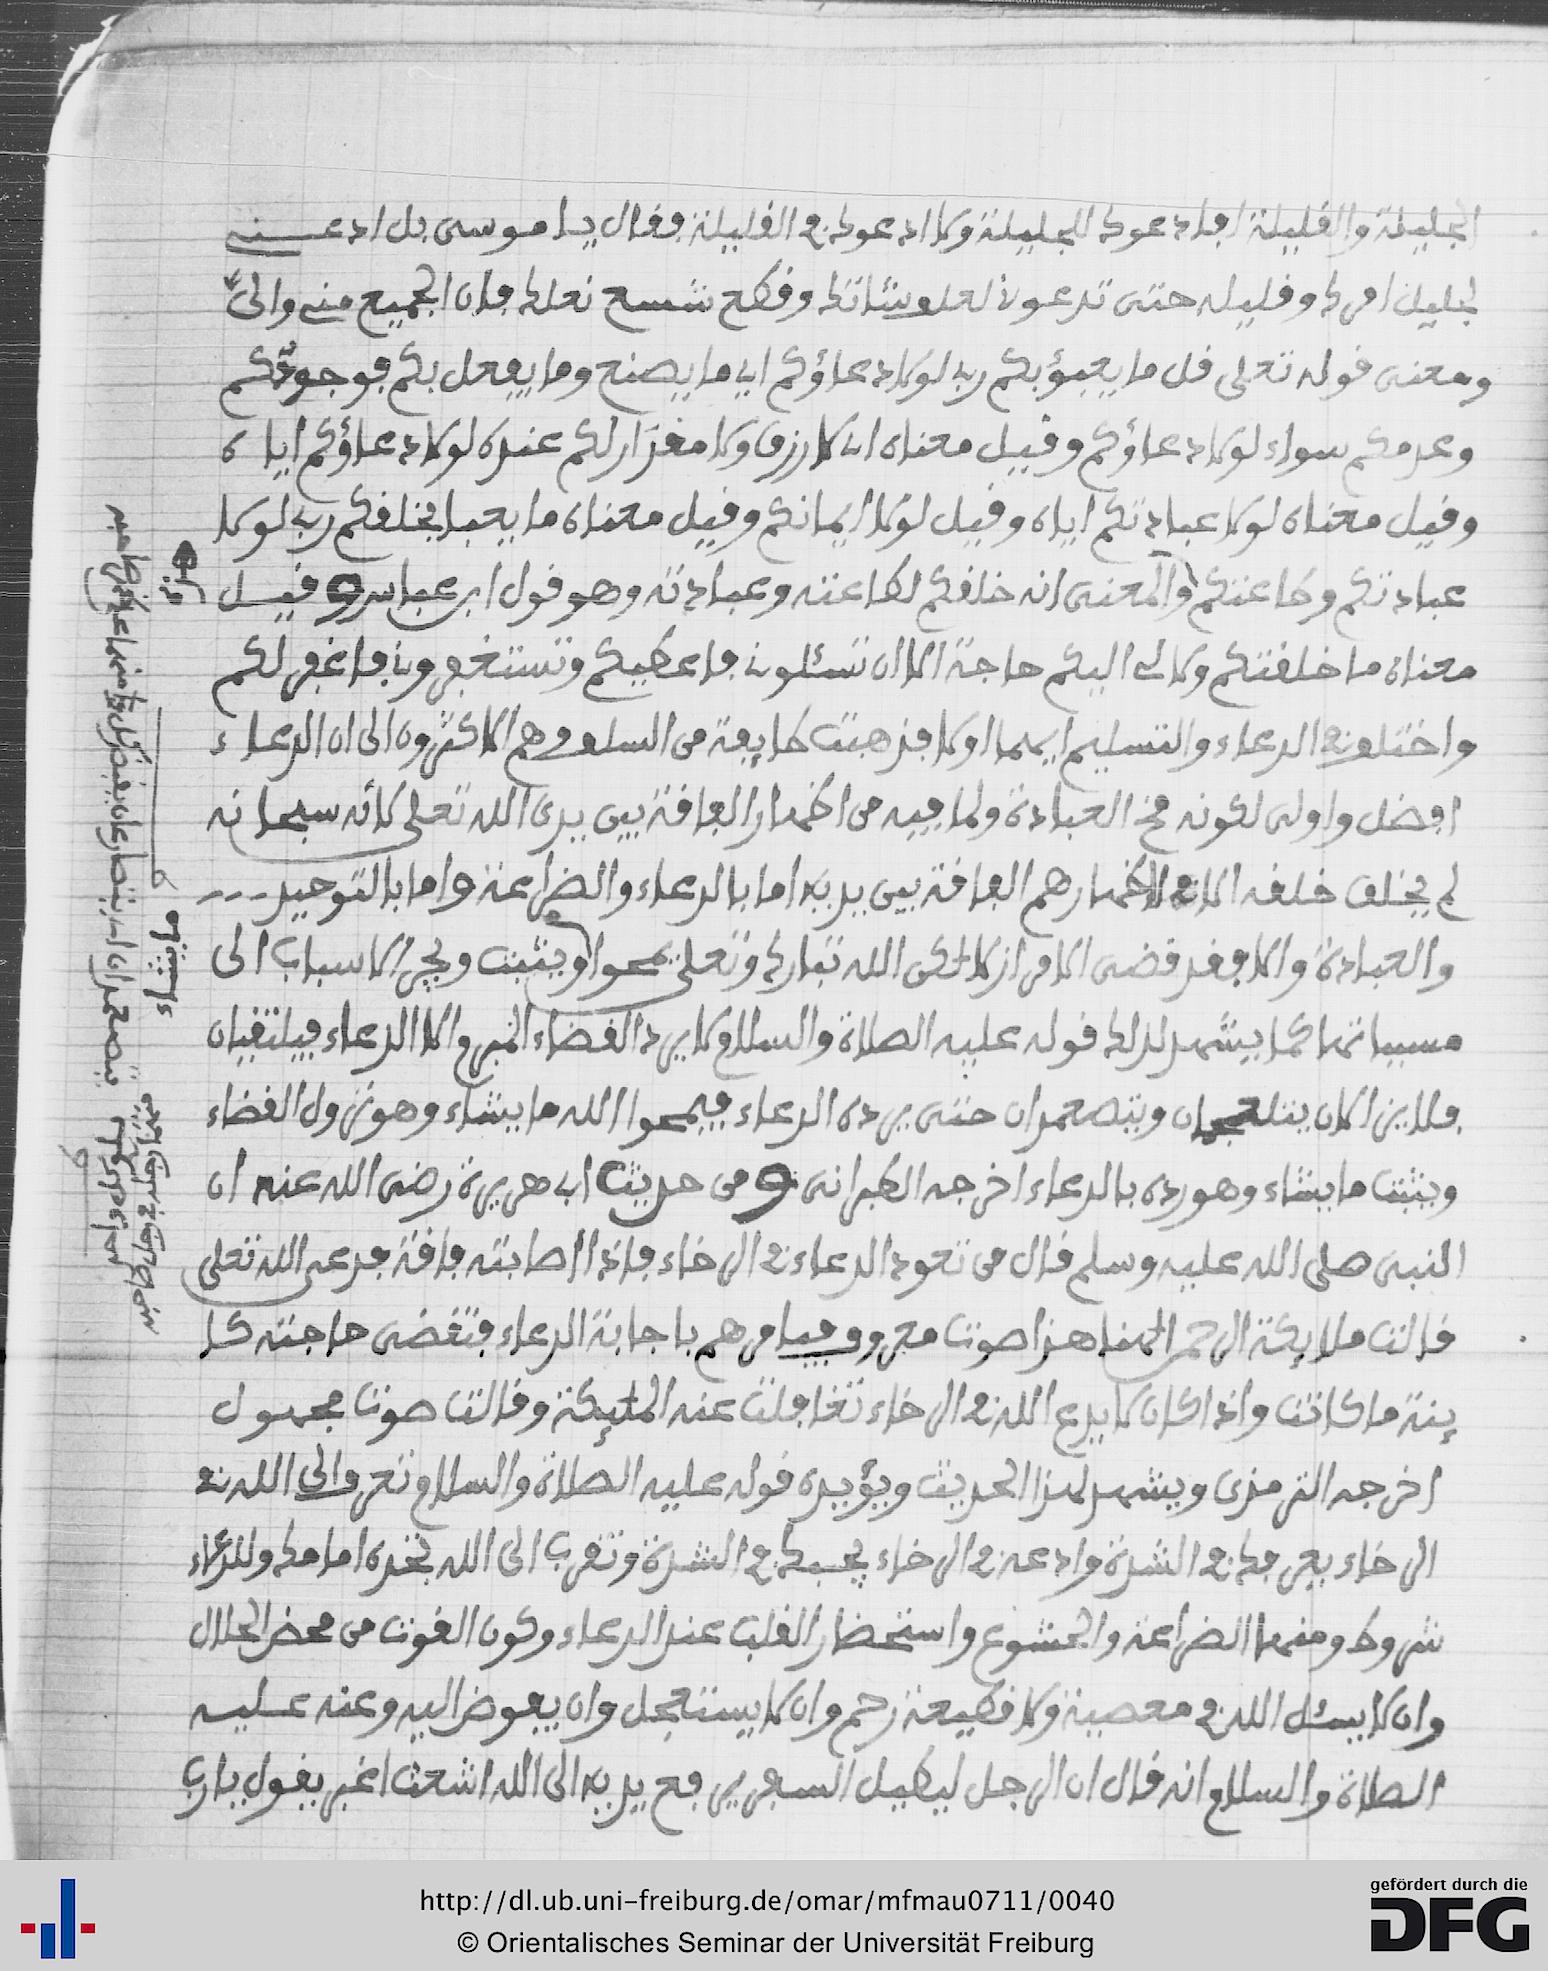 الجليلة والقليلة افادعوك للجليلة ولا ادعوك في القليلة فقال يا موسى بل ادعني
لجليل امرك وقليله حتى تدعوني لعلف شاتك وقطع شسع نعلك فان الجميع مني والىّ
ومعنى قوله تعلى قل ما يعبؤ بكم ربي لولا دعاؤكم اي ما يصنع وما يفعل بكم فوجودكم
وعدمكم سواء لولا دعاؤكم وقيل معناه اي لا رزق ولا مقدار لكم عنده لولا دعاؤكم اياه
وقيل معناه لولا عبادتكم اياه وقيل لولا ايمانكم وقيل معناه ما يعبا بخلقكم ربي لولا
عبادتكم وطاعتكم والمعنى انه خلقكم لطاعته وعبادته وهو قول ابن عباس وقيل
معناه ما خلقتكم ولا لي اليكم حاجة الا ان تسئلوني فاعطيكم وتستغفروني فاغفر لكم
واختلف في الدعاء والتسليم ايهما اولا فذهبت طايفة من السلف وهم الاكثرون الى ان الدعاء
افضل واولى لكونه مخ العبادة ولما فيه من اظهار الفاقة بين يدى الله تعلى لانه سبحانه
لم يخلق خلقه الا لاظهارهم الفاقة بين يديه اما بالدعاء والضراعة واما بالتوحيد
والعبادة والا فقد قضى الامر ازلا لكن الله تبارك وتعلى يمحوا ويثبت ويجري الاسباب الى
مسبباتها كما يشهد لذلك قوله عليه الصلاة والسلام لا يرد القضاء المبرم الا الدعاء فيلتقيان
فلا يزالان يتلعجان ويتصعدان حتى يرده الدعاء فيمحوا الله ما يشاء وهو نزول القضاء
ويثبت ما يشاء وهو رده بالدعاء اخرجه الطبرانى ومن حديث ابي هريرة رضى الله عنه ان
النبى صلى الله عليه وسلم قال من تعود الدعاء في الرخاء فاذا اصابته فاقة فدعى الله تعلى
قالت ملايكة الرحمن الهنا هذا صوت معروف فيامرهم باجابة الدعاء فتقضى حاجته كا
ينة ما كانت واذا كان لا يدع الله في الرخاء تغافلت عنه المليكة وقالت صوت مجهول
اخرجه الترمذى ويشهد لهذا الحديث ويؤيده قوله عليه الصلاة والسلام تعرف الى الله في
الرخاء يعرفك في الشدة وادعه في الرخاء يجبك في الشدة وتقرب الى الله تجده امامك وللدعاء
شروط ومنها الضراعة والخشوع واستحضار القلب عند الدعاء وكون القوت من محض الحلال
وان لا يسئل الله في معصية ولا قطيعة رحم وان لا يستعجل وان يفوض اليه وعنه عليه
الصلاة والسلام انه قال ان الرجل ليطيل السفر يرفع يديه الى الله اشعث اغبر يقول يا رب
http://dl.ub.uni-freiburg.de/omar/mfmau0711/0040
© Orientalisches Seminar der Universität Freiburg
gefördert durch die
DFG